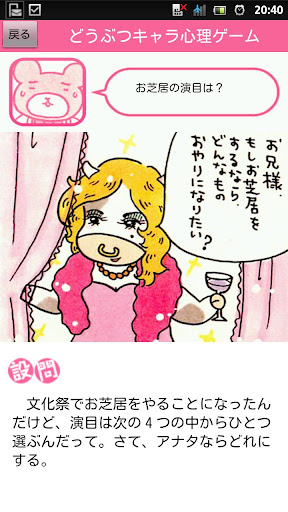 20:40
戻る
どうぶつキャラ心理ゲーム
お芝居の演目は？
お兄様、
もしお芝居を
するなら、
どんなもの
おやりになりたい？
設問
　文化祭でお芝居をやることになったん
だけど、演目は次の４つの中からひとつ
選ぶんだって。さて、アナタならどれに
する。